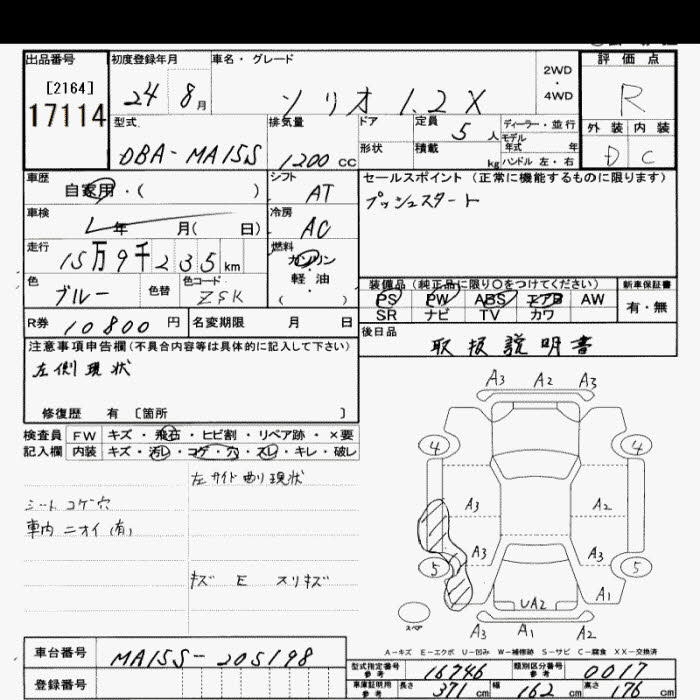 出品番号
[2164]
17114
初度登録年月
24 8月
車名・グレード
ソリオ 1.2X
2WD
・
4WD
評価点
R
外装 内装
D C
型式
DBA-MA15S
排気量
1200cc
ドア
形状
定員
5人
積載
kg
ディーラー・並行
モデル年式 年
ハンドル 左・右
車歴
自家用・( )
シフト
AT
車検
年 月( 日)
冷房
AC
走行
15万9千235km
燃料
ガソリン
軽・油
( )
色
ブルー
色替
色コード
ZSK
R券
10800円
名変期限 月 日
セールスポイント (正常に機能するものに限ります)
プッシュスタート
装備品 (純正品に限り○をつけてください)
PS PW ABS エアB AW
SR ナビ TV カワ
新車保証書
有・無
後日品
取扱説明書
注意事項申告欄(不具合内容等は具体的に記入して下さい)
左側現状
修復歴 有 [箇所 ]
検査員記入欄
FW キズ・飛石・ヒビ割・リペア跡・×要
内装 キズ・汚レ・コゲ・穴・スレ・キレ・破レ
左サイド曲り現状
シートコゲ穴
車内ニオイ(有)
キズ E スリキズ
A3 A2 A3
4 4
A3 A2
A3 A3
5 5
A1
UA2
A3 A1 A2
スペア
A-キズ E-エクボ U-凹み W-補修跡 S-サビ C-腐食 XX-交換済
車台番号
MA15S-205198
登録番号
型式指定番号
参考
16746
類別区分番号
参考
0017
車庫証明用
参考
長さ 371cm 幅 162cm 高さ 176cm